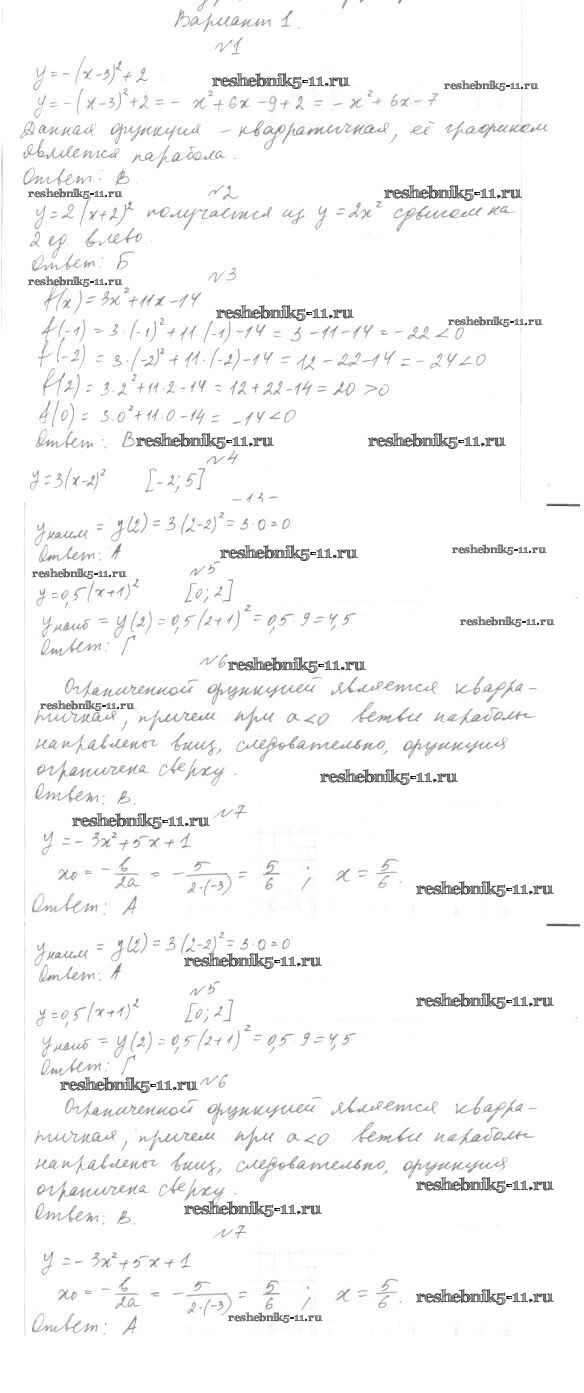 Вариант 1.
№1
y=-(x-3)²+2
reshebnik5-11.ru
reshebnik5-11.ru
y=-(x-3)²+2 = - x²+6x-9+2 = -x²+6x-7
Данная функция - квадратичная, её графиком
является парабола.
Ответ: В.
№2
reshebnik5-11.ru
reshebnik5-11.ru
y=2(x+2)² получается из y=2x² сдвигом на
2 ед влево.
Ответ: Б
№3
reshebnik5-11.ru
reshebnik5-11.ru
f(x)=3x²+11x-14
reshebnik5-11.ru
reshebnik5-11.ru
f(-1)=3·(-1)²+11·(-1)-14=3-11-14=-22<0
f(-2)=3·(-2)²+11·(-2)-14=12-22-14=-24<0
f(2)=3·2²+11·2-14=12+22-14=20>0
f(0)=3·0²+11·0-14=-14<0
Ответ: В
reshebnik5-11.ru
reshebnik5-11.ru
№4
y=3(x-2)² [-2;5]
-13-
yнаим = y(2)=3(2-2)²=3·0=0
Ответ: А
reshebnik5-11.ru
reshebnik5-11.ru
№5
reshebnik5-11.ru
y=0,5(x+1)² [0;2]
yнаиб = y(2)=0,5(2+1)²=0,5·9=4,5
reshebnik5-11.ru
Ответ: Г
№6
reshebnik5-11.ru
Ограниченной функцией является квадра-
reshebnik5-11.ru
тичная, причем при a<0 ветви параболы
направлены вниз, следовательно, функция
ограничена сверху.
reshebnik5-11.ru
Ответ: В.
reshebnik5-11.ru
№7
y=-3x²+5x+1
x₀=-b/2a=-5/2·(-3)=5/6; x=5/6.
reshebnik5-11.ru
Ответ: А
yнаим = y(2)=3(2-2)²=3·0=0
reshebnik5-11.ru
Ответ: А
№5
reshebnik5-11.ru
y=0,5(x+1)² [0;2]
yнаиб = y(2)=0,5(2+1)²=0,5·9=4,5
Ответ: Г
reshebnik5-11.ru
№6
Ограниченной функцией является квадра-
тичная, причем при a<0 ветви параболы
направлены вниз, следовательно, функция
ограничена сверху.
reshebnik5-11.ru
Ответ: В.
reshebnik5-11.ru
№7
y=-3x²+5x+1
x₀=-b/2a=-5/2·(-3)=5/6; x=5/6.
reshebnik5-11.ru
reshebnik5-11.ru
Ответ: А